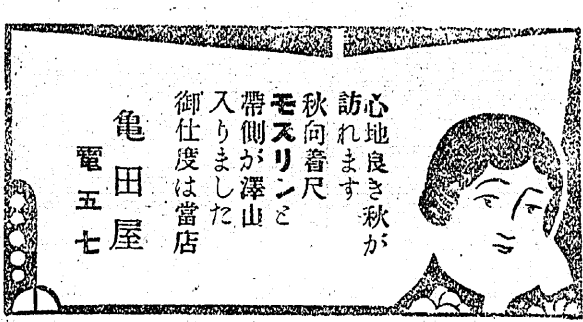 心地良き秋が
訪れます
秋向着尺
モスリンと
帶側が澤山
入りました
御仕度は當店
亀田屋
電五七